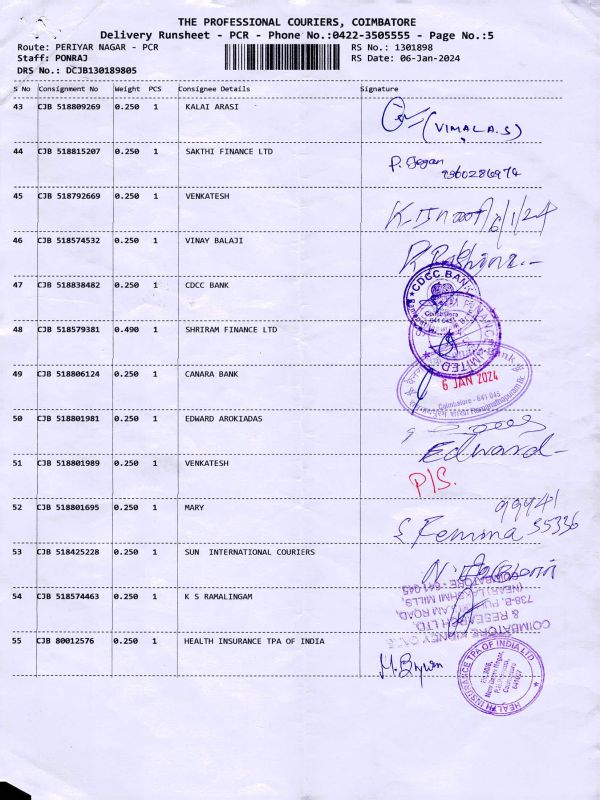 THE PROFESSIONAL COURIERS, COIMBATORE
Delivery Runsheet - PCR - Phone No.:0422-3505555 - Page No.:5
Route: PERIYAR NAGAR - PCR RS No.: 1301898
Staff: PONRAJ RS Date: 06-Jan-2024
DRS No.: DCJB130189805
S No Consignment No Weight PCS Consignee Details Signature
43 CJB 518809269 0.250 1 KALAI ARASI
(VIMALA.S)
44 CJB 518815207 0.250 1 SAKTHI FINANCE LTD
P. Jegan
45 CJB 518792669 0.250 1 VENKATESH
6/1/24
46 CJB 518574532 0.250 1 VINAY BALAJI
47 CJB 518838482 0.250 1 CDCC BANK
CDCC BANK
Coimbatore
641 045
48 CJB 518579381 0.490 1 SHRIRAM FINANCE LTD
LIMITED
49 CJB 518806124 0.250 1 CANARA BANK
6 JAN 2024
Coimbatore - 641 045
Ramanathapuram Br.
50 CJB 518801981 0.250 1 EDWARD AROKIADAS
Edward
51 CJB 518801989 0.250 1 VENKATESH
P/S.
52 CJB 518801695 0.250 1 MARY
99941
35336
53 CJB 518425228 0.250 1 SUN INTERNATIONAL COURIERS
54 CJB 518574463 0.250 1 K S RAMALINGAM
COIMBATORE KIDNEY
& RESEARCH LTD.
738-B, PULIAKULAM ROAD,
(NEAR) LAKSHMI MILLS,
COIMBATORE - 641 045
55 CJB 80012576 0.250 1 HEALTH INSURANCE TPA OF INDIA
HEALTH INSURANCE TPA OF INDIA LTD